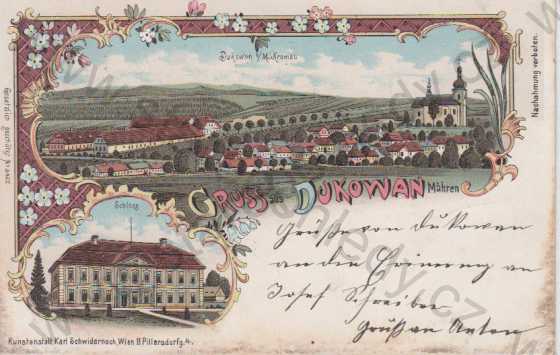 Dukowan b/M. Kromau
Nachahmung verboten.
Gesetzlich geschützt
GRUSS aus DUKOWAN
Mähren
Schloss
Grüße von Dukowan
an die Erinerung an
Josef Schreiber
Grüßen Anton
Kunstanstalt Karl Schwidernoch, Wien II Pillersdorfg. 4.